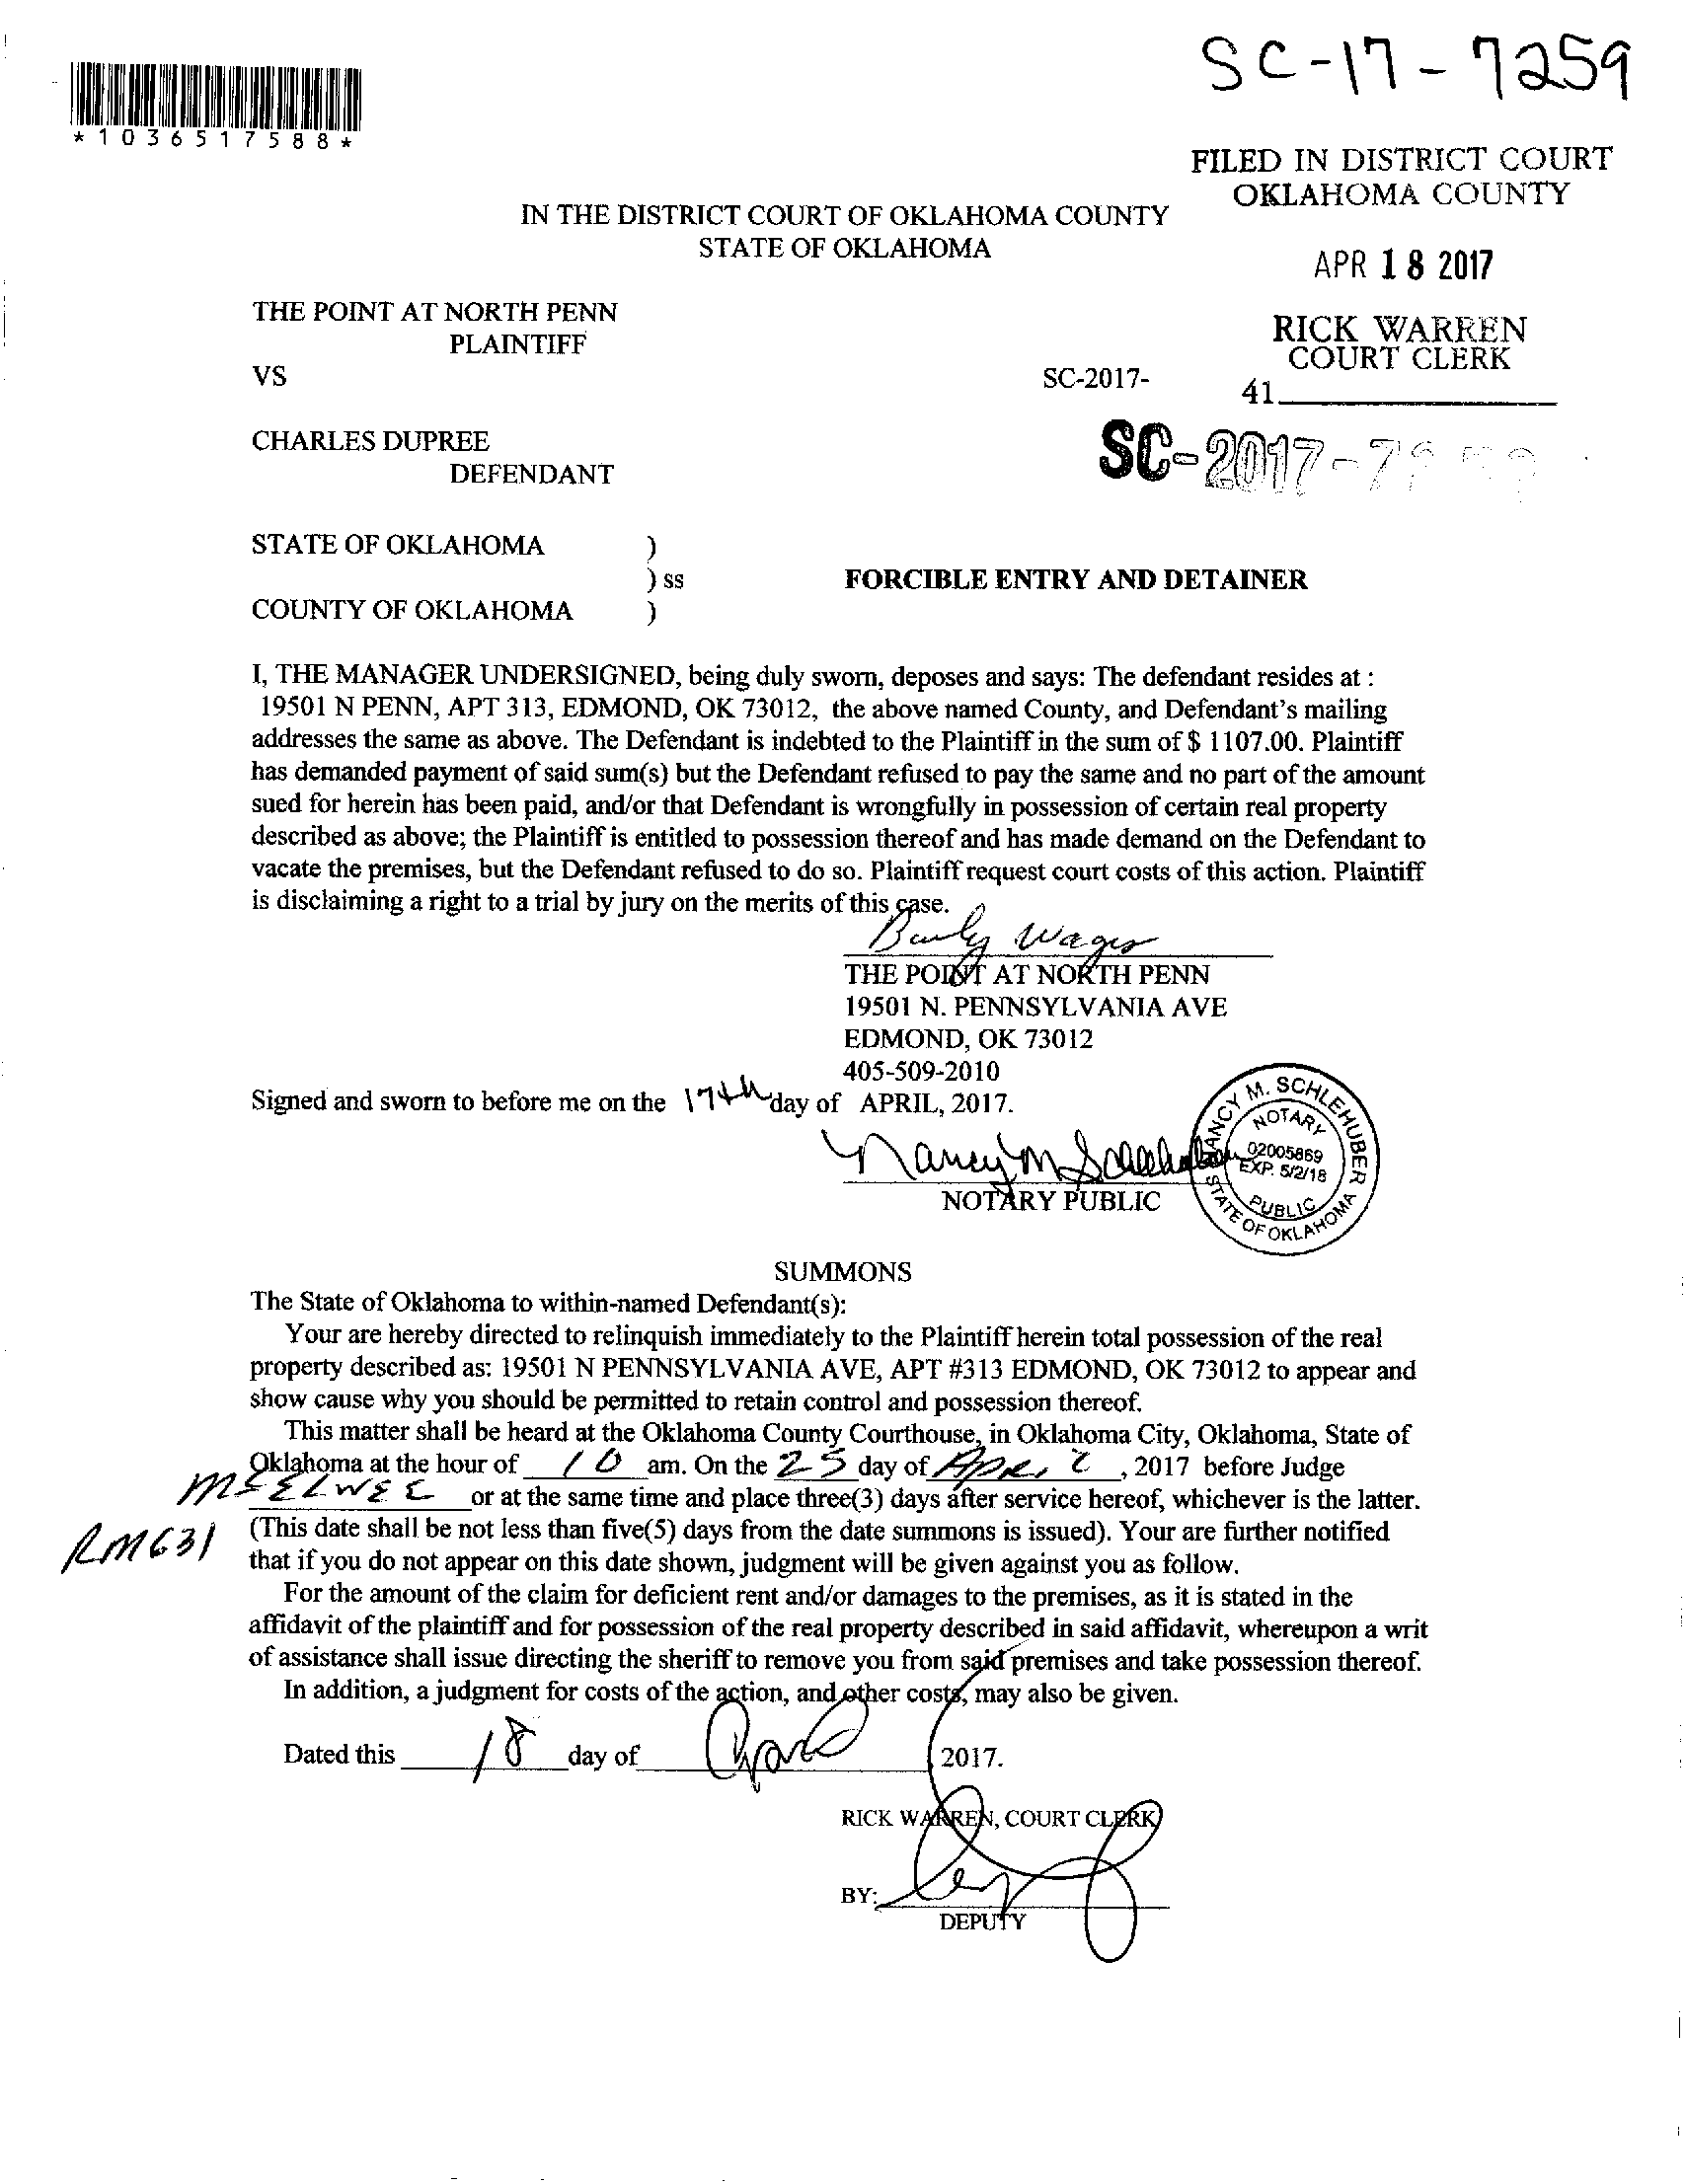 SC-17-7259
*1036517588*
FILED IN DISTRICT COURT
OKLAHOMA COUNTY
IN THE DISTRICT COURT OF OKLAHOMA COUNTY
STATE OF OKLAHOMA
APR 18 2017
THE POINT AT NORTH PENN
PLAINTIFF
RICK WARREN
COURT CLERK
VS
SC-2017-
41
CHARLES DUPREE
DEFENDANT
SC-2017-7
STATE OF OKLAHOMA )
) ss FORCIBLE ENTRY AND DETAINER
COUNTY OF OKLAHOMA )
I, THE MANAGER UNDERSIGNED, being duly sworn, deposes and says: The defendant resides at :
19501 N PENN, APT 313, EDMOND, OK 73012, the above named County, and Defendant's mailing
addresses the same as above. The Defendant is indebted to the Plaintiff in the sum of $ 1107.00. Plaintiff
has demanded payment of said sum(s) but the Defendant refused to pay the same and no part of the amount
sued for herein has been paid, and/or that Defendant is wrongfully in possession of certain real property
described as above; the Plaintiff is entitled to possession thereof and has made demand on the Defendant to
vacate the premises, but the Defendant refused to do so. Plaintiff request court costs of this action. Plaintiff
is disclaiming a right to a trial by jury on the merits of this case.
Wages
THE POINT AT NORTH PENN
19501 N. PENNSYLVANIA AVE
EDMOND, OK 73012
405-509-2010
Signed and sworn to before me on the 17th day of APRIL, 2017.
Nancy M Schlehuber
NOTARY PUBLIC
NANCY M. SCHLEHUBER
NOTARY
02005869
EXP. 5/2/18
PUBLIC
STATE OF OKLAHOMA
SUMMONS
The State of Oklahoma to within-named Defendant(s):
Your are hereby directed to relinquish immediately to the Plaintiff herein total possession of the real
property described as: 19501 N PENNSYLVANIA AVE, APT #313 EDMOND, OK 73012 to appear and
show cause why you should be permitted to retain control and possession thereof.
This matter shall be heard at the Oklahoma County Courthouse, in Oklahoma City, Oklahoma, State of
Oklahoma at the hour of 10 am. On the 25 day of April, 2017 before Judge
McELWEE or at the same time and place three(3) days after service hereof, whichever is the latter.
RM631 (This date shall be not less than five(5) days from the date summons is issued). Your are further notified
that if you do not appear on this date shown, judgment will be given against you as follow.
For the amount of the claim for deficient rent and/or damages to the premises, as it is stated in the
affidavit of the plaintiff and for possession of the real property described in said affidavit, whereupon a writ
of assistance shall issue directing the sheriff to remove you from said premises and take possession thereof.
In addition, a judgment for costs of the action, and other costs, may also be given.
Dated this 18 day of April 2017.
RICK WARREN, COURT CLERK
BY:
DEPUTY